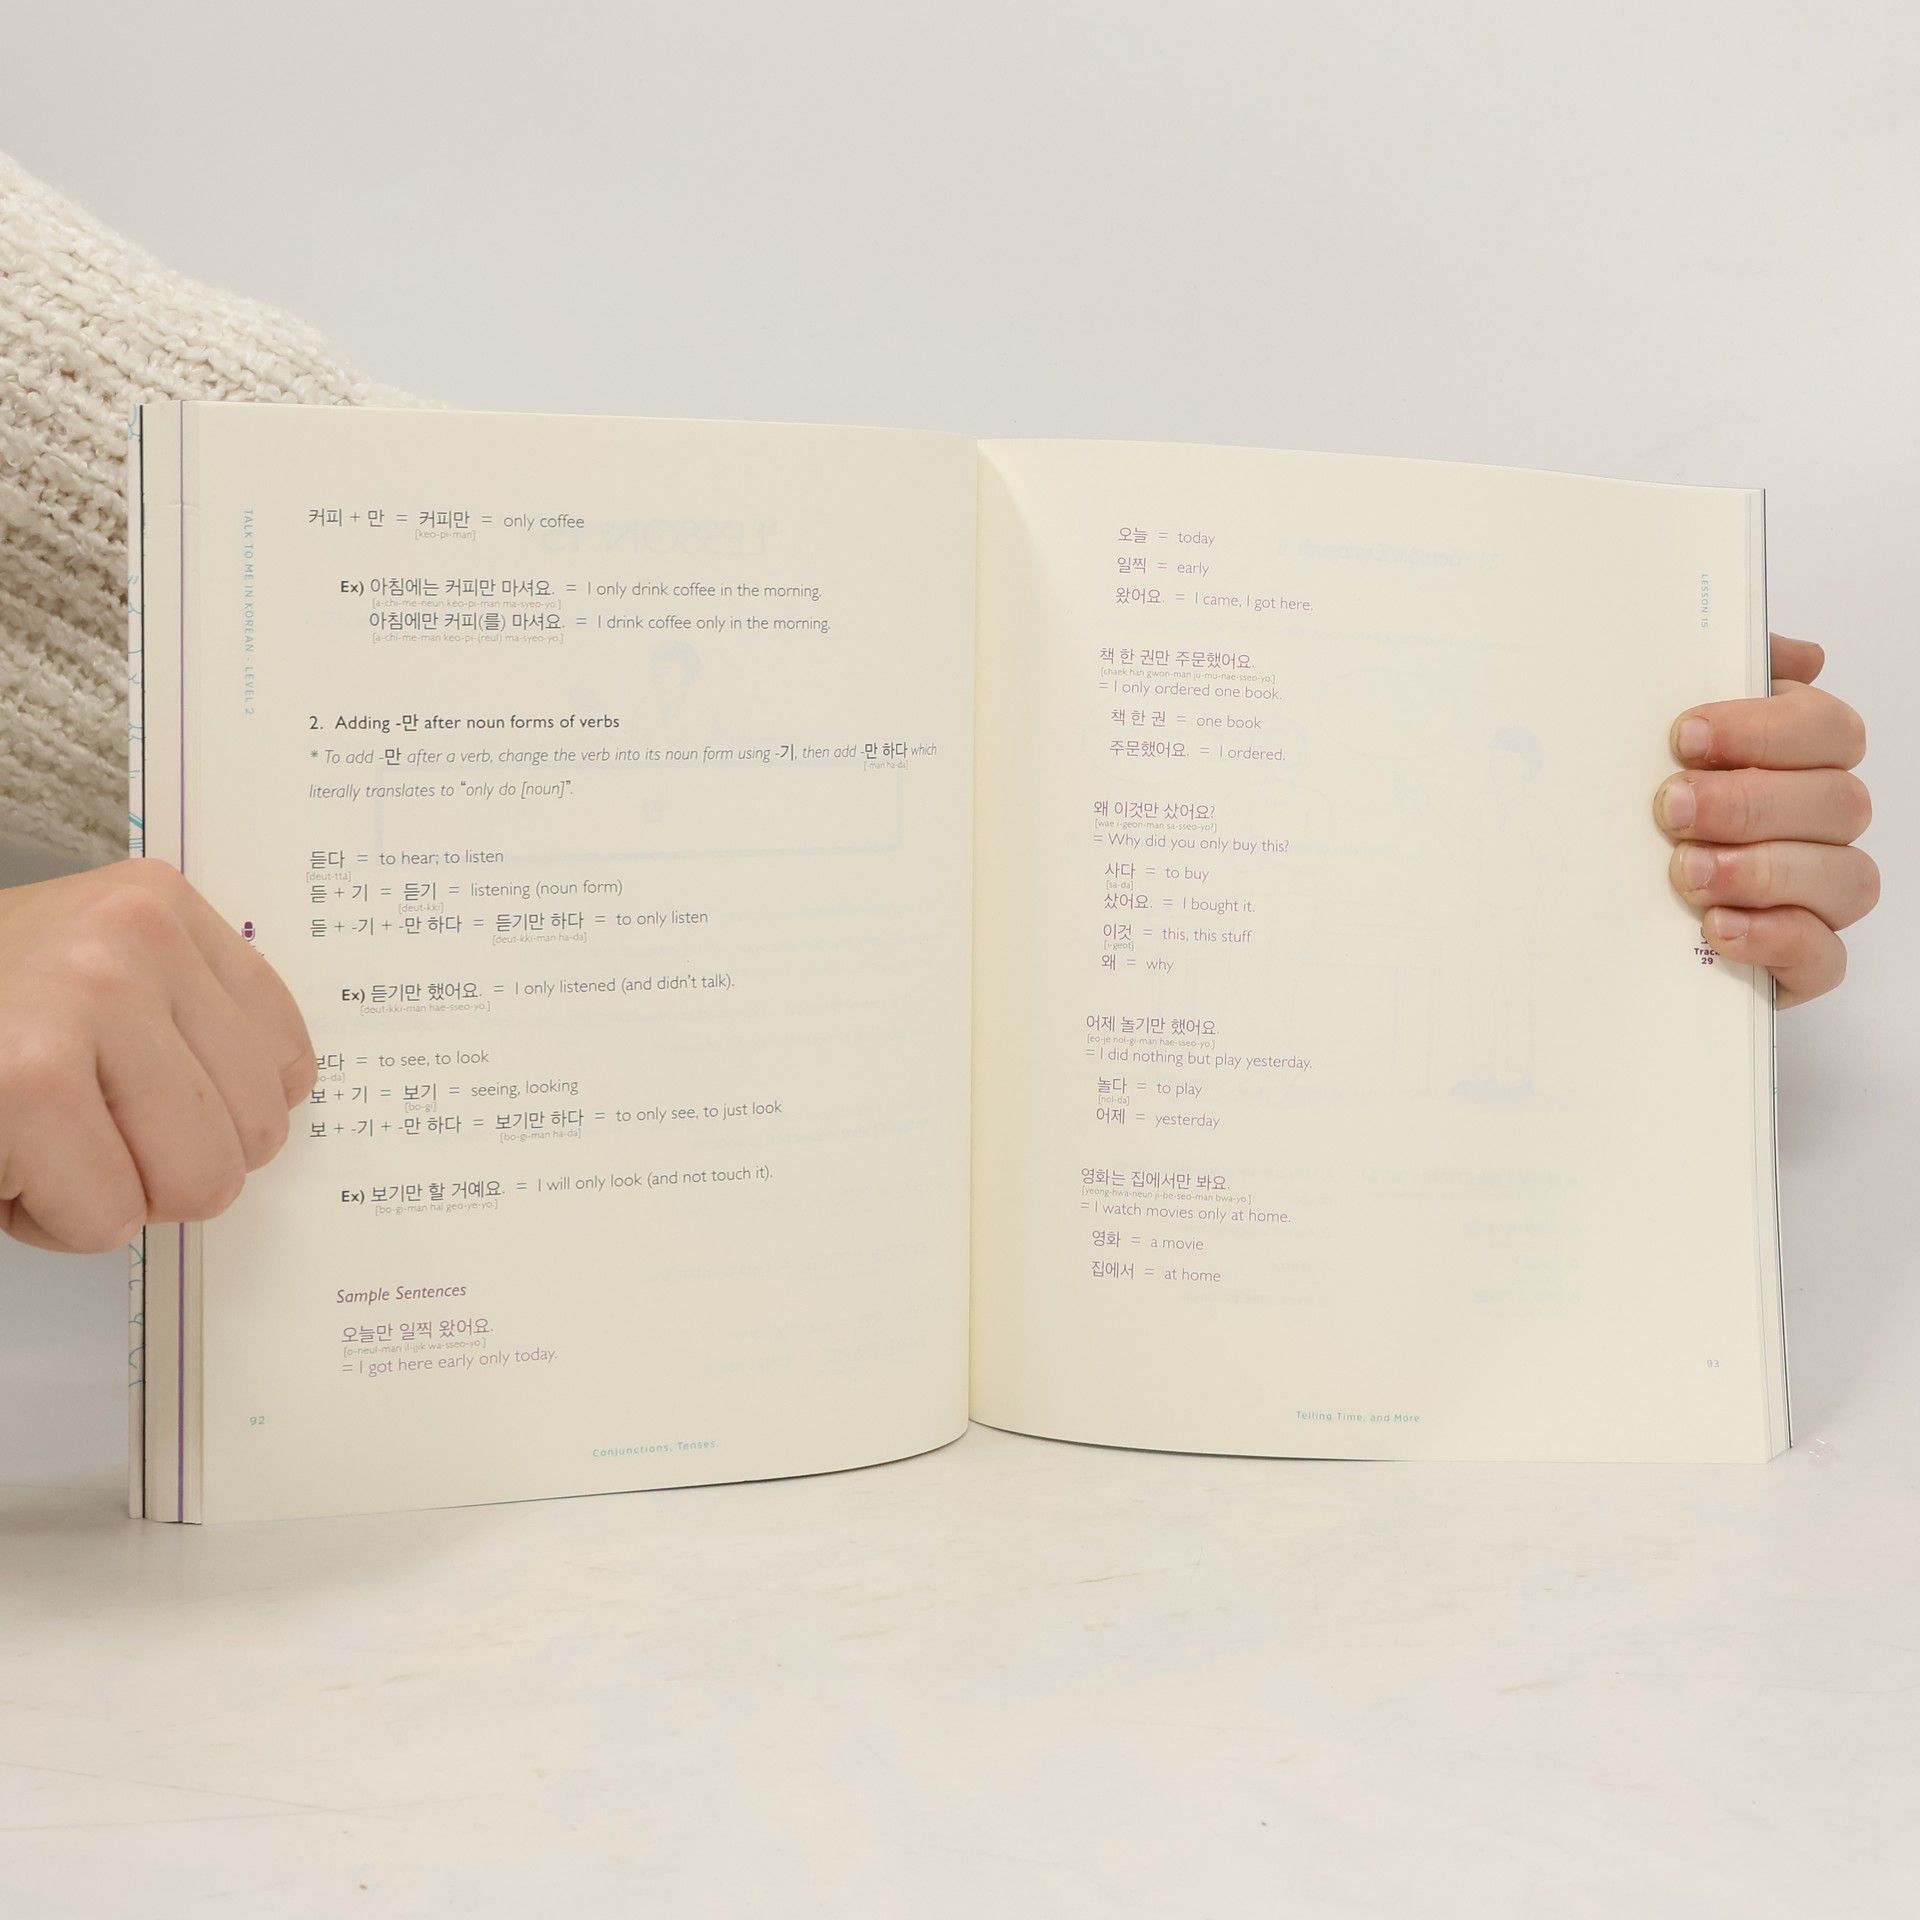 TALK TO ME IN KOREAN - LEVEL 2
커피 + 만 = 커피만 = only coffee
[keo-pi-man]
Ex) 아침에는 커피만 마셔요. = I only drink coffee in the morning.
[a-chi-me-neun keo-pi-man ma-syeo-yo.]
아침에만 커피(를) 마셔요. = I drink coffee only in the morning.
[a-chi-me-man keo-pi-(reul) ma-syeo-yo.]
2. Adding -만 after noun forms of verbs
* To add -만 after a verb, change the verb into its noun form using -기, then add -만 하다 which
[-man ha-da]
literally translates to “only do [noun]”.
듣다 = to hear; to listen
[deut-tta]
듣 + 기 = 듣기 = listening (noun form)
[deut-kki]
듣 + -기 + -만 하다 = 듣기만 하다 = to only listen
[deut-kki-man ha-da]
Ex) 듣기만 했어요. = I only listened (and didn't talk).
[deut-kki-man hae-sseo-yo.]
보다 = to see, to look
보 + 기 = 보기 = seeing, looking
[bo-gi]
보 + -기 + -만 하다 = 보기만 하다 = to only see, to just look
[bo-gi-man ha-da]
Ex) 보기만 할 거예요. = I will only look (and not touch it).
[bo-gi-man hal geo-ye-yo.]
Sample Sentences
오늘만 일찍 왔어요.
[o-neul-man il-jjik wa-sseo-yo.]
= I got here early only today.
92
Conjunctions, Tenses,
오늘 = today
일찍 = early
왔어요. = I came, I got here.
책 한 권만 주문했어요.
[chaek han gwon-man ju-mu-nae-sseo-yo.]
= I only ordered one book.
책 한 권 = one book
주문했어요. = I ordered.
왜 이것만 샀어요?
[wae i-geon-man sa-sseo-yo?]
= Why did you only buy this?
사다 = to buy
[sa-da]
샀어요. = I bought it.
이것 = this, this stuff
[i-geot]
왜 = why
어제 놀기만 했어요.
[eo-je nol-gi-man hae-sseo-yo.]
= I did nothing but play yesterday.
놀다 = to play
[nol-da]
어제 = yesterday
영화는 집에서만 봐요.
[yeong-hwa-neun ji-be-seo-man bwa-yo.]
= I watch movies only at home.
영화 = a movie
집에서 = at home
LESSON 15
Track
29
93
Telling Time, and More